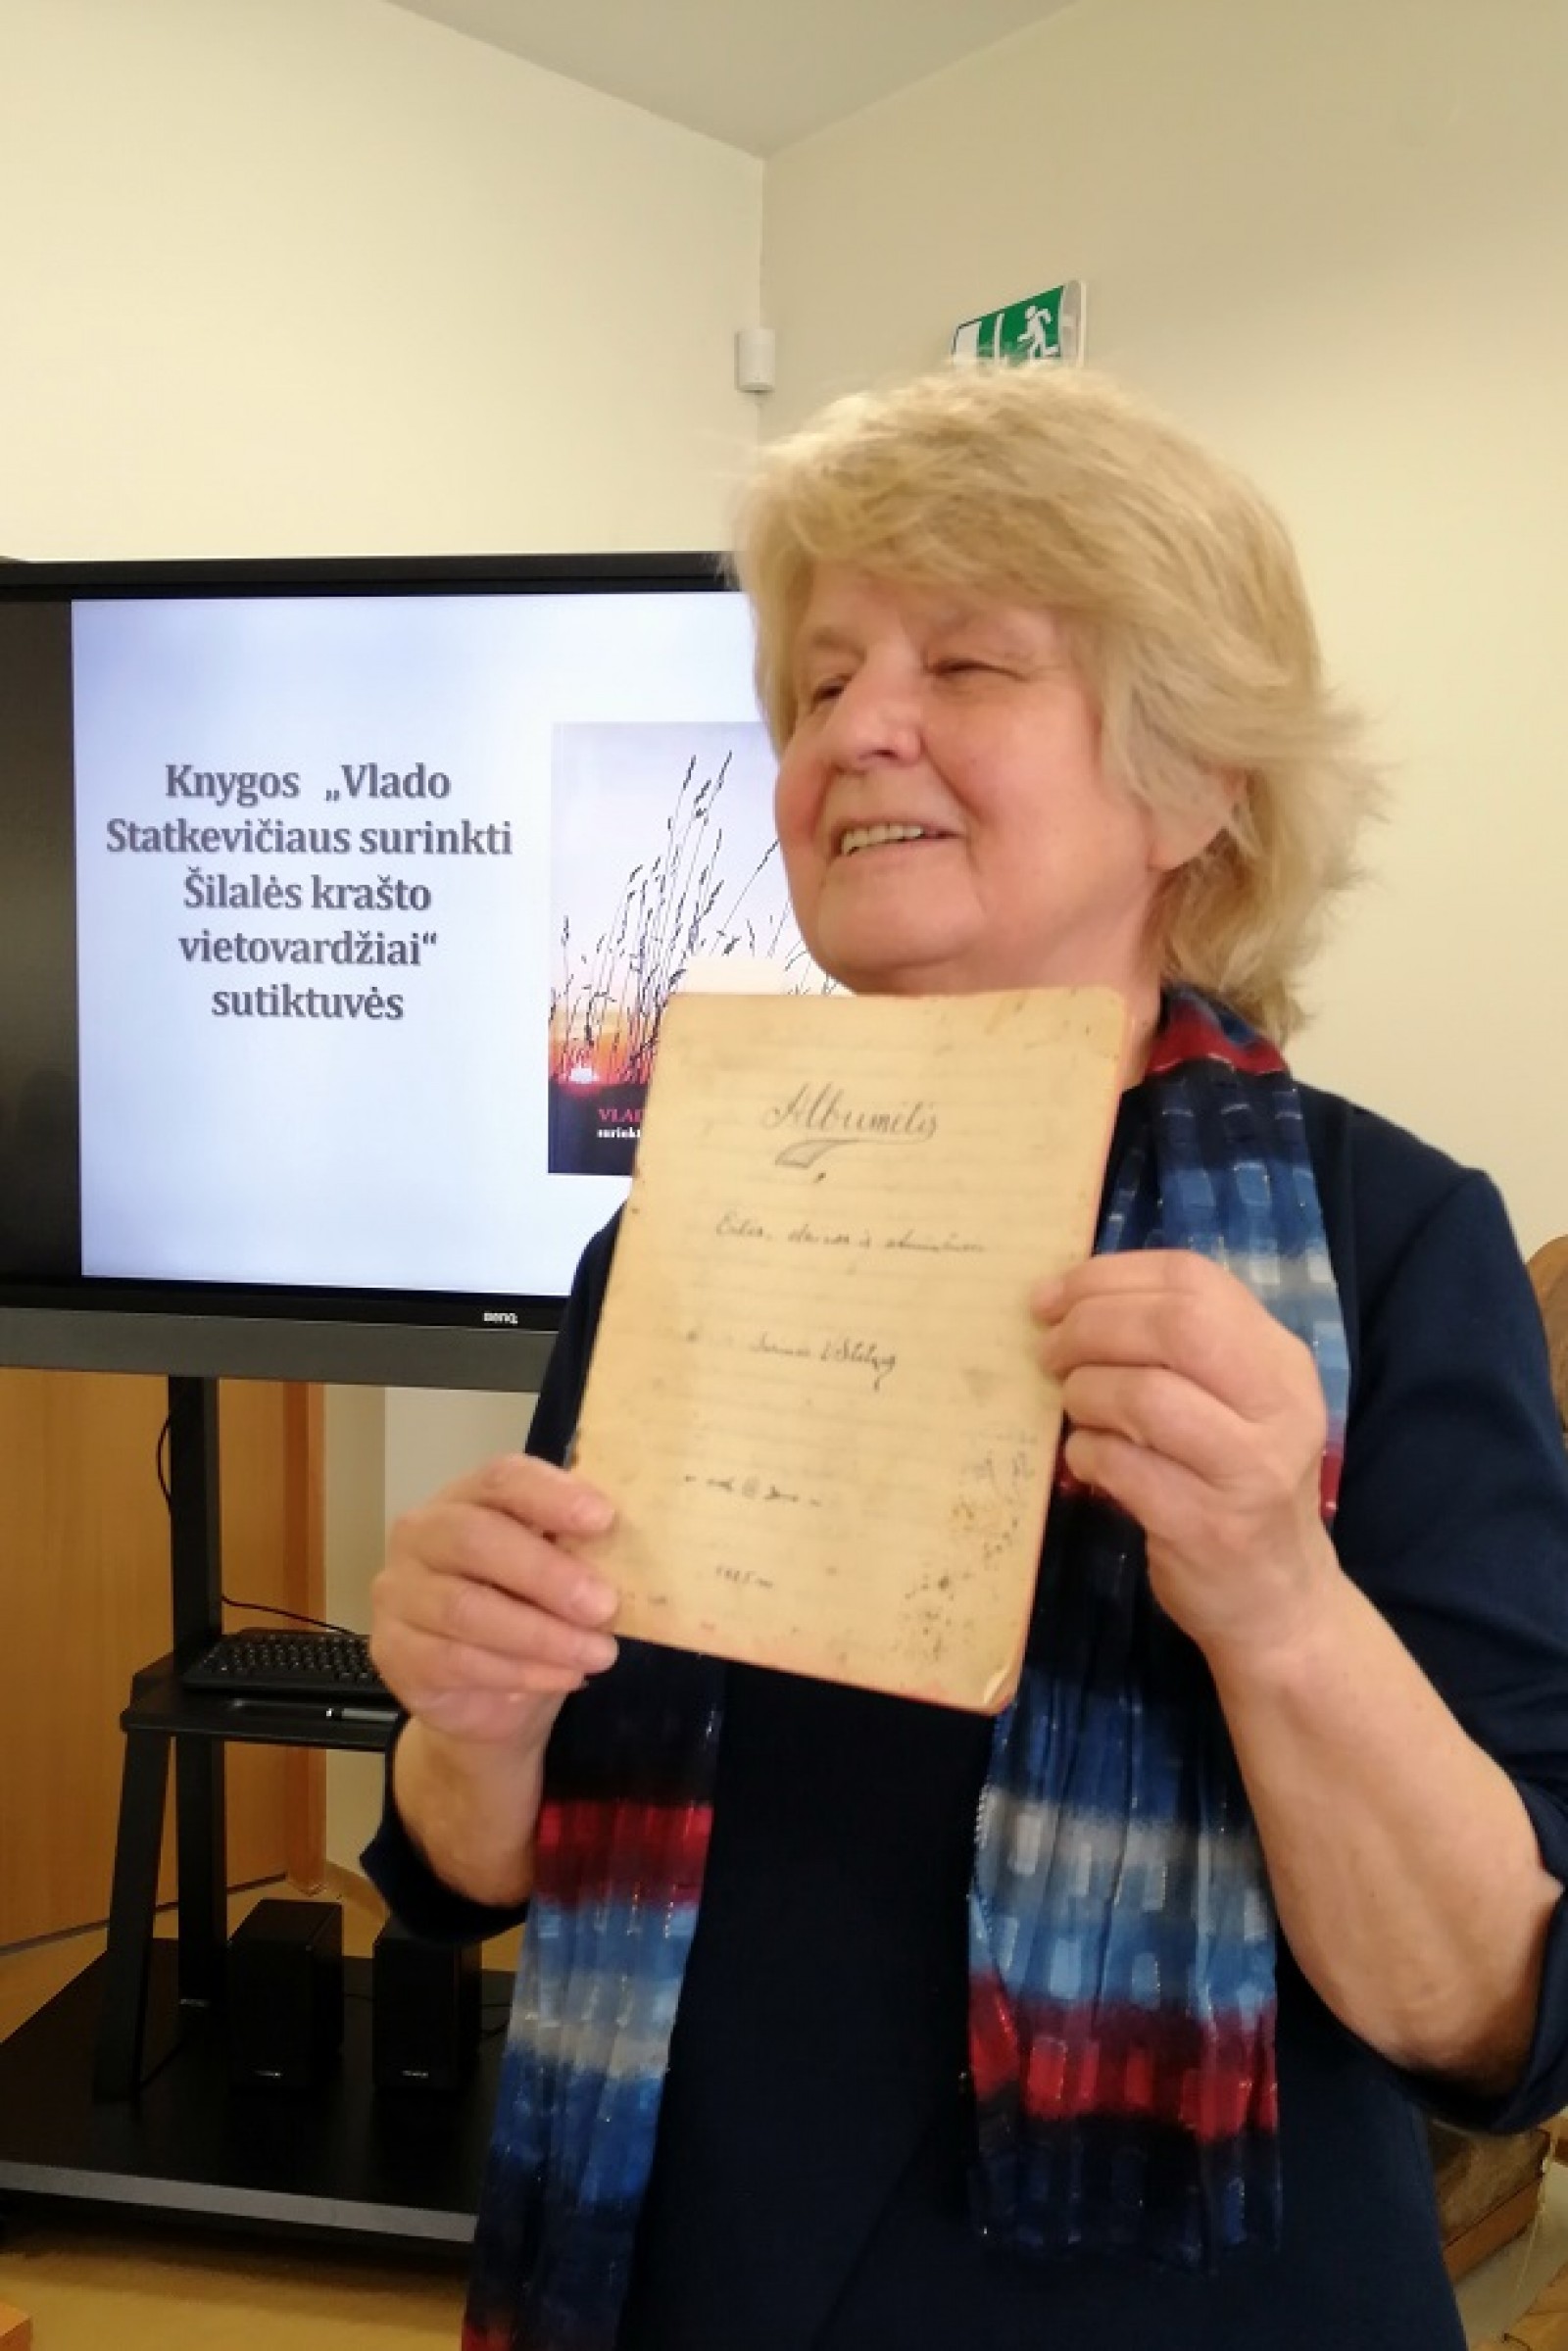 Knygos „Vlado
Statkevičiaus surinkti
Šilalės krašto
vietovardžiai“
sutiktuvės
VLAD
surinkt
BenQ
Albumėlis